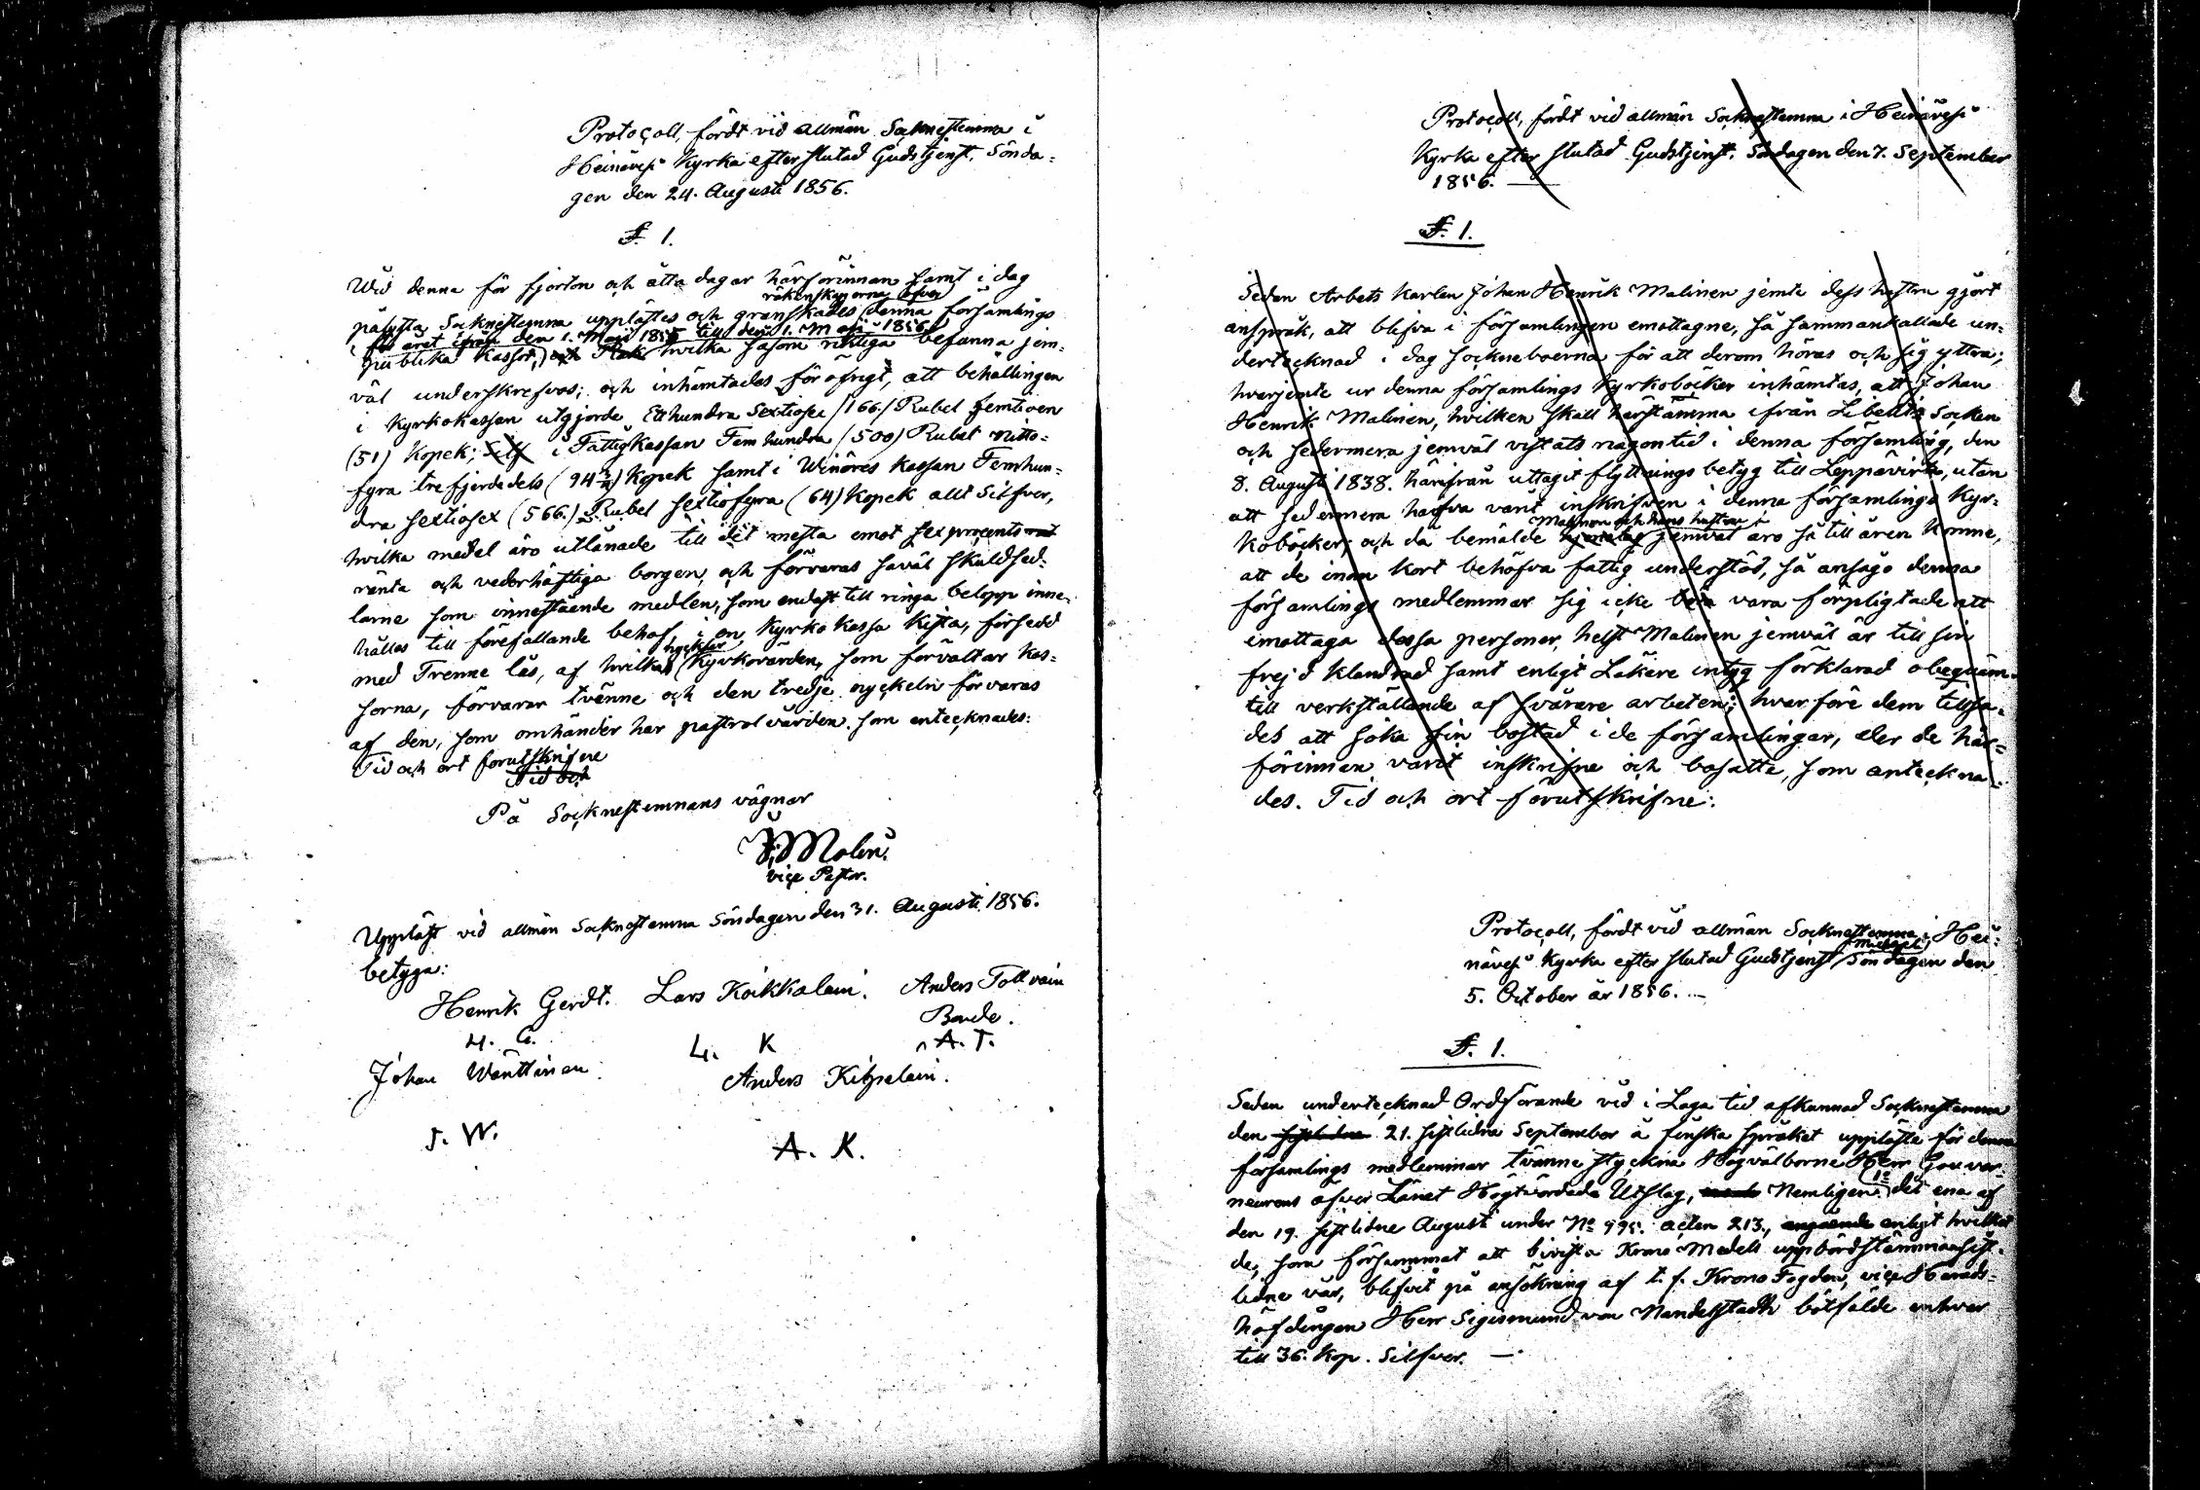 Protocoll, fördt vid allmän Socknestemma i
Heinävesi Kyrka efter slutad Gudstjenst, Sönda-
gen den 24. Augusti 1856.
§. 1.
Wid denna för fjorton och åtta dagar härförinnan samt i dag
räkenskaperna öfver
pålysta Socknestemma upplästes och granskades denna församlings
för året ifrån den 1. Maji 1855 till den 1. Maji 1856,
publika Kassor, hvilka såsom riktiga befanna jem-
väl underskrefvos; och inhämtades föröfrigt, att behållingen
i Kyrkokassan utgjorde Etthundra Sextiosex /166./ Rubel femtioen
(51) Kopek; i Fattigkassan Fem hundra /500/ Rubel nittio-
fyra trefjerdedels (94 3/4) Kopek samt i Winäres kassan Femhun-
dra sextiosex (566.) Rubel sextiofyra (64) Kopek allt Silfver,
hvilka medel äro utlånade till det mesta emot sex procents
ränta och vederhäftiga borgen, och förvaras såväl skuldsed-
larne som innestående medlen, som endast till ringa belopp inne-
hålles till förefallande behof, i en Kyrko kassa Kista, försedd
nycklar
med Trenne lås, af hvilkas Kyrkovärden, som förvaltar Kas-
sorna, förvarar tvänne och den tredje nyckeln förvaras
af den, som omhänder har pastorsvården. som antecknades:
Tid och ort förutskrifne
Tid och
På Socknestemmans vägnar
Molin.
vice Pastor.
Uppläst vid allmän Socknestemma Söndagen den 31. Augusti 1856.
betyga:
Henrik Gerdt. Lars Koikkalain. Anders Tolvain
Bonde.
H. G. L. K A. T.
Johan Wänttinen. Anders Kitzalain.
J. W. A. K.
Protocoll, fördt vid allmän Socknestemma i Heinävesi
Kyrka efter slutad Gudstjenst, Söndagen den 7. September
1856.
§. 1.
Sedan Arbets karlen Johan Henrik Malinen jemte dess hustru gjört
anspråk, att blifva i församlingen emottagne, så sammankallade un-
dertecknad i dag sockneboerna för att derom höras och sig yttra;
hvarjemte ur denna församlings Kyrkoböcker inhämtas, att Johan
Henrik Malinen, hvilken skall härstamma ifrån Libelits Socken
och sedermera jemväl vistats någon tid i denna församling, den
8. Augusti 1838. härifrån uttagit flyttnings betyg till Leppävirta, utan
att sedermera hafva varit inskrifven i denna församlings Kyr-
Malinen och hans hustru
koböcker; och då bemälde jemväl äro så till åren komne,
att de inom kort behöfva fattig understöd, så ansågo denna
församlings medlemmar sig icke vara förpligtade att
emottaga dessa personer, helst Malinen jemväl är till sin
frejd klandrad samt enligt Läkare intyg förklarad obeqväm
till verkställande af svårare arbeten; hvarföre dem tillsa-
des att söka sin bostad i de församlingar, der de här-
förinnan varit inskrifne och bosatte, som anteckna-
des. Tid och ort förutskrifne:
Protocoll, fördt vid allmän Socknestemma i Hei-
Michaeli
nävesi Kyrka efter slutad Gudstjenst Söndagen den
5. October år 1856.
§. 1.
Sedan undertecknad Ordförande vid i Laga tid afkunnad Socknestemma
den sistlidne 21. sistlidne September å finska språket uppläste för denna
församlings medlemmar tvänne stycken Högvälborne Herr Gouver-
neurens öfver Länet Högtvördade Utslag, Nemligen: 1o det ena af
den 19. sistlidne Augusti under No 995. acten 213., angående enligt hvilket
de, som försummat att bivista Krono Medels uppbördsstämman sist-
lidne vår, blifvit på ansökning af t. f. Krono Fogden, vice Härads-
höfdingen Herr Sigismund von Nandelstadh bötfälde enhvar
till 36. Kop. Silfver.